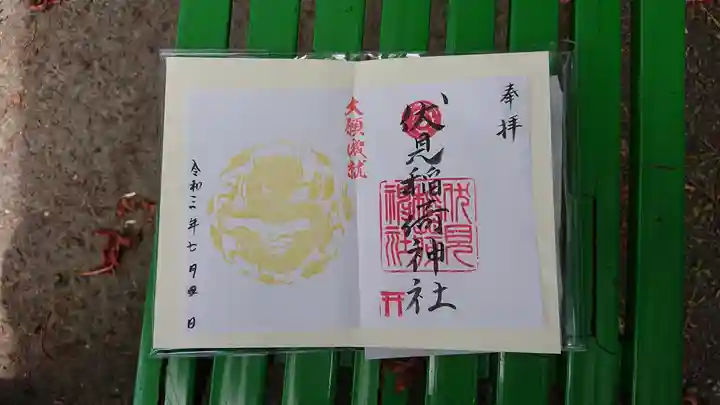 奉拝
伏見稲荷神社
伏見稲荷神社
大願成就
令和三年七月四日